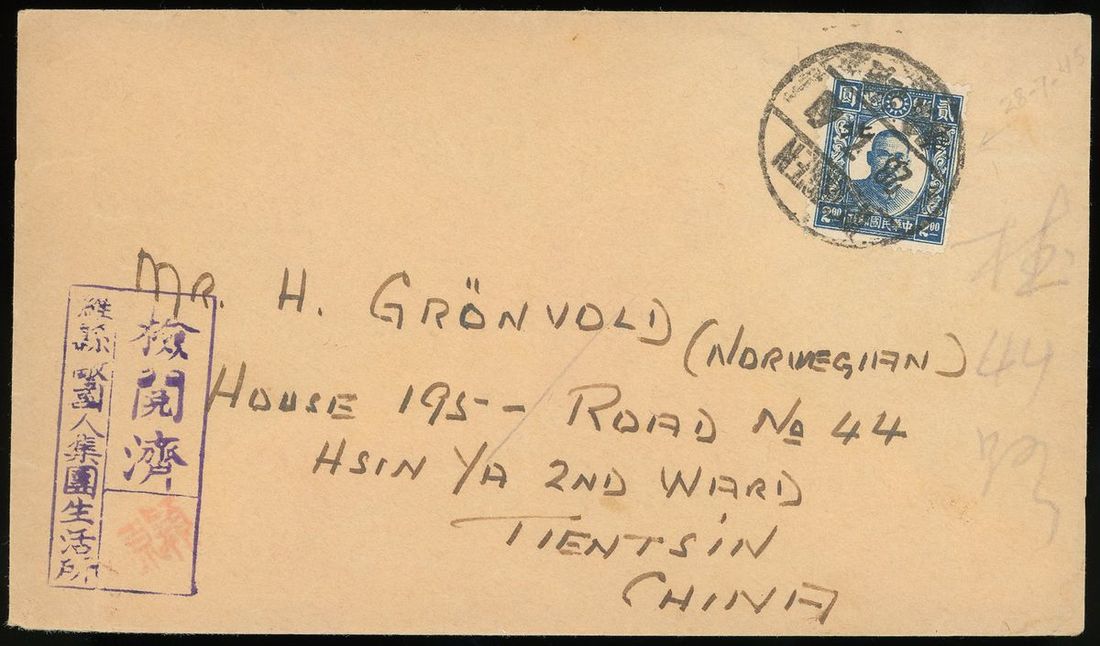 28-7-45
貳 圓
2.00 2.00
44
MR. H. GRÖNVOLD (NORWEGIAN)
HOUSE 195 - ROAD No 44
HSIN YA 2ND WARD
TIENTSIN
CHINA
檢開濟
濰縣敵國人集團生活所